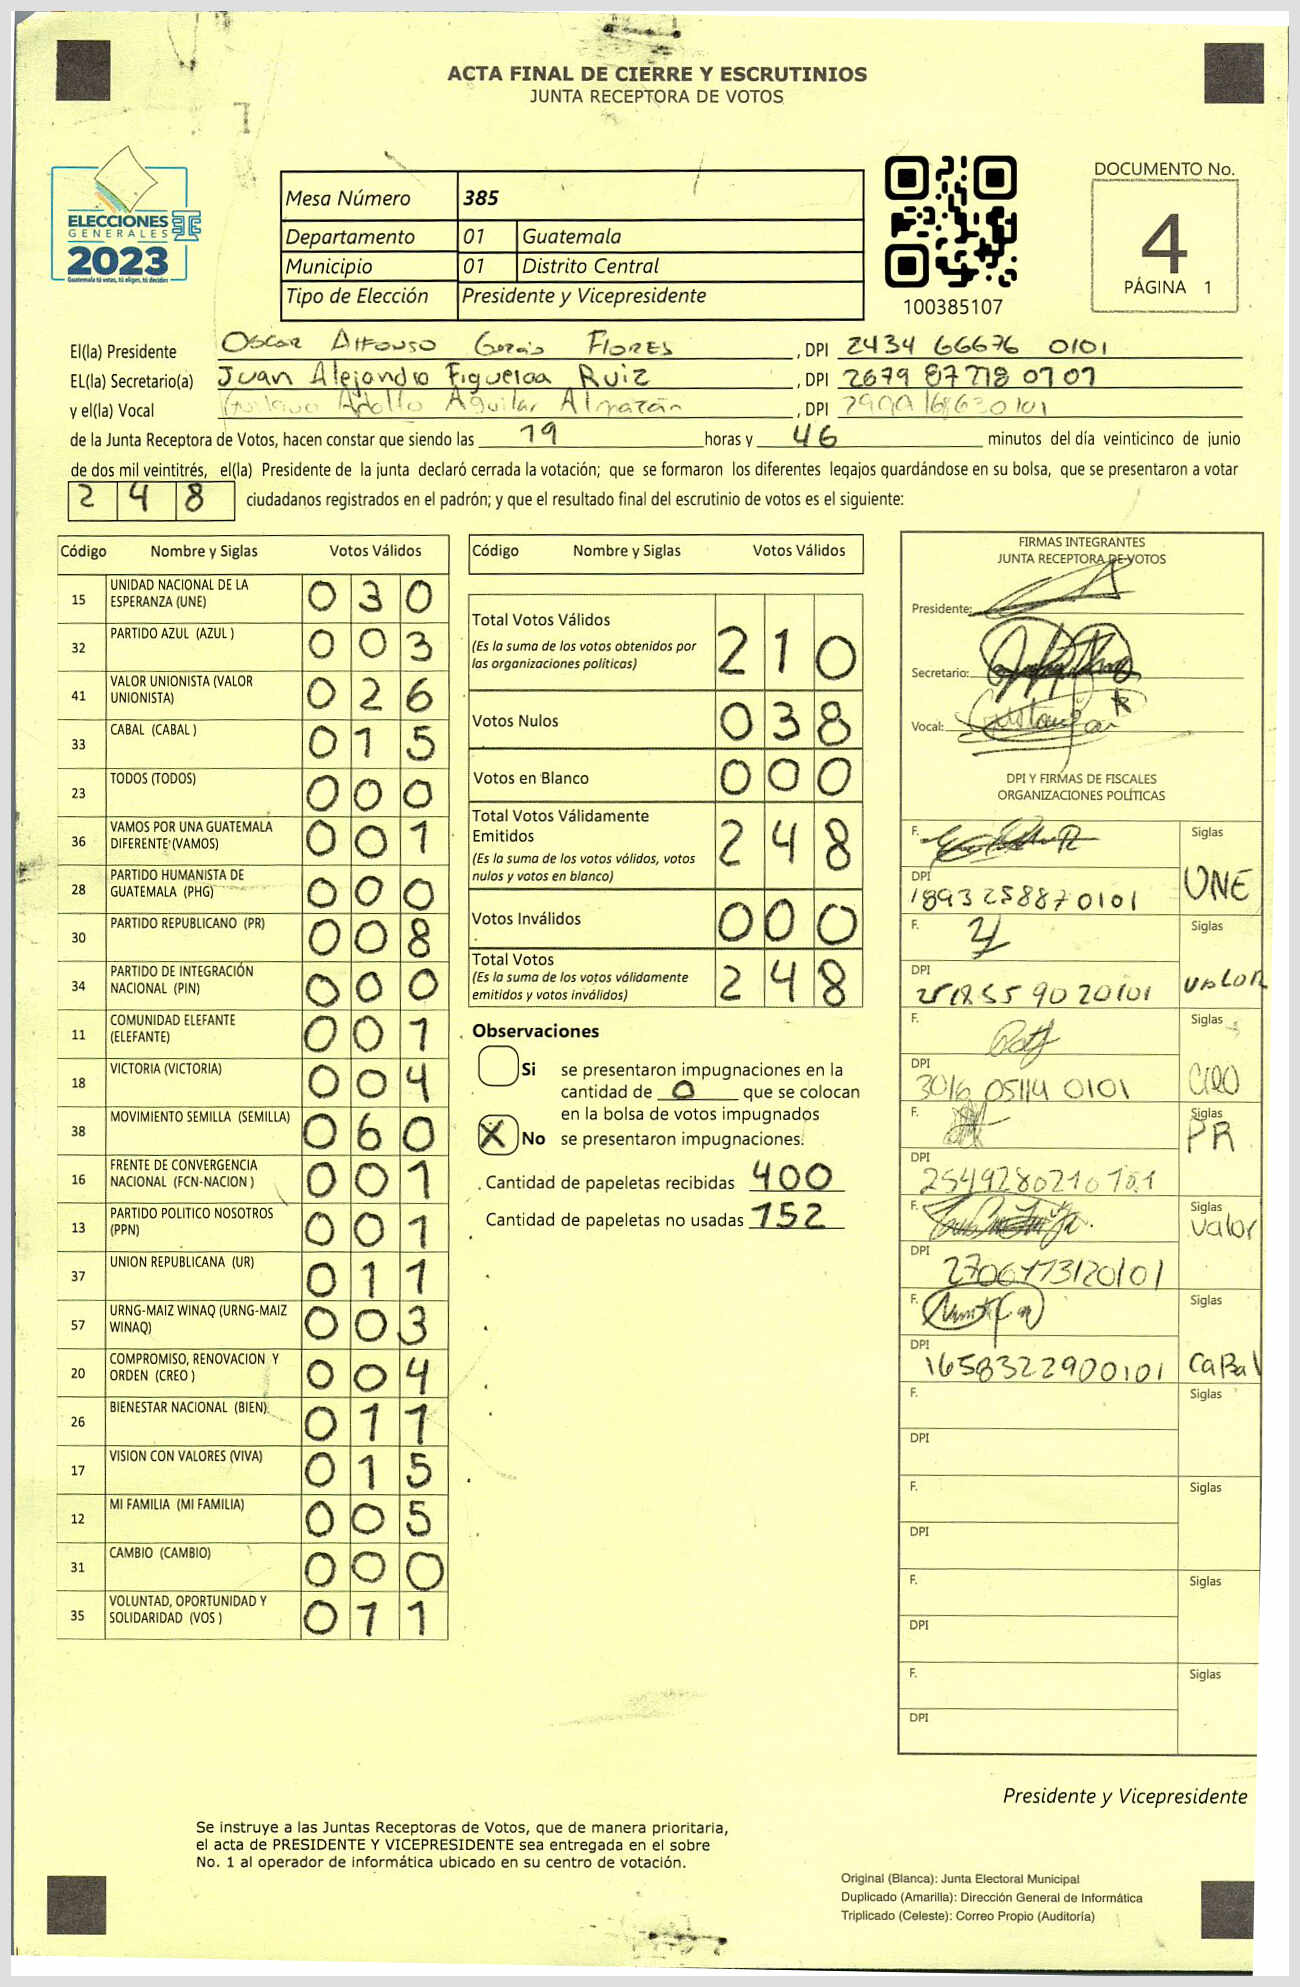 ACTA FINAL DE CIERRE Y ESCRUTINIOS
JUNTA RECEPTORA DE VOTOS
ELECCIONES
GENERALES
2023
Guatemala tú votas, tú eliges, tú decides
Mesa Número 385
Departamento 01 Guatemala
Municipio 01 Distrito Central
Tipo de Elección Presidente y Vicepresidente
100385107
DOCUMENTO No.
4
PÁGINA 1
El(la) Presidente Oscar Alfonso García Flores, DPI 2434 66676 0101
EL(la) Secretario(a) Juan Alejandro Figueroa Ruiz, DPI 2679 87718 0101
y el(la) Vocal Gustavo Adolfo Aguilar Almazán, DPI
de la Junta Receptora de Votos, hacen constar que siendo las 19 horas y 46 minutos del día veinticinco de junio
de dos mil veintitrés, el(la) Presidente de la junta declaró cerrada la votación; que se formaron los diferentes legajos guardándose en su bolsa, que se presentaron a votar
248 ciudadanos registrados en el padrón; y que el resultado final del escrutinio de votos es el siguiente:
Código Nombre y Siglas Votos Válidos
15 UNIDAD NACIONAL DE LA ESPERANZA (UNE) 030
32 PARTIDO AZUL (AZUL ) 003
41 VALOR UNIONISTA (VALOR UNIONISTA) 026
33 CABAL (CABAL ) 015
23 TODOS (TODOS) 000
36 VAMOS POR UNA GUATEMALA DIFERENTE (VAMOS) 001
28 PARTIDO HUMANISTA DE GUATEMALA (PHG) 000
30 PARTIDO REPUBLICANO (PR) 008
34 PARTIDO DE INTEGRACIÓN NACIONAL (PIN) 000
11 COMUNIDAD ELEFANTE (ELEFANTE) 001
18 VICTORIA (VICTORIA) 004
38 MOVIMIENTO SEMILLA (SEMILLA) 060
16 FRENTE DE CONVERGENCIA NACIONAL (FCN-NACION ) 001
13 PARTIDO POLITICO NOSOTROS (PPN) 001
37 UNION REPUBLICANA (UR) 011
57 URNG-MAIZ WINAQ (URNG-MAIZ WINAQ) 003
20 COMPROMISO, RENOVACION Y ORDEN (CREO ) 004
26 BIENESTAR NACIONAL (BIEN) 011
17 VISION CON VALORES (VIVA) 015
12 MI FAMILIA (MI FAMILIA) 005
31 CAMBIO (CAMBIO) 000
35 VOLUNTAD, OPORTUNIDAD Y SOLIDARIDAD (VOS ) 011
Código Nombre y Siglas Votos Válidos
Total Votos Válidos 210
(Es la suma de los votos obtenidos por
las organizaciones políticas)
Votos Nulos 038
Votos en Blanco 000
Total Votos Válidamente Emitidos 248
(Es la suma de los votos válidos, votos
nulos y votos en blanco)
Votos Inválidos 000
Total Votos 248
(Es la suma de los votos válidamente
emitidos y votos inválidos)
Observaciones
Si se presentaron impugnaciones en la
cantidad de 0 que se colocan
en la bolsa de votos impugnados
X No se presentaron impugnaciones.
Cantidad de papeletas recibidas 400
Cantidad de papeletas no usadas 152
FIRMAS INTEGRANTES
JUNTA RECEPTORA DE VOTOS
Presidente:
Secretario:
Vocal:
DPI Y FIRMAS DE FISCALES
ORGANIZACIONES POLÍTICAS
F. Siglas UNE
DPI 1893258870101
F. Siglas VALOR
DPI
F. Siglas
DPI 3016 05114 0101
F. Siglas PR
DPI 2549280210101
F. Siglas Valor
DPI
F. Siglas CABAL
DPI 1658322900101
F. Siglas
DPI
F. Siglas
DPI
F. Siglas
DPI
F. Siglas
DPI
Presidente y Vicepresidente
Se instruye a las Juntas Receptoras de Votos, que de manera prioritaria,
el acta de PRESIDENTE Y VICEPRESIDENTE sea entregada en el sobre
No. 1 al operador de informática ubicado en su centro de votación.
Original (Blanca): Junta Electoral Municipal
Duplicado (Amarilla): Dirección General de Informática
Triplicado (Celeste): Correo Propio (Auditoría)